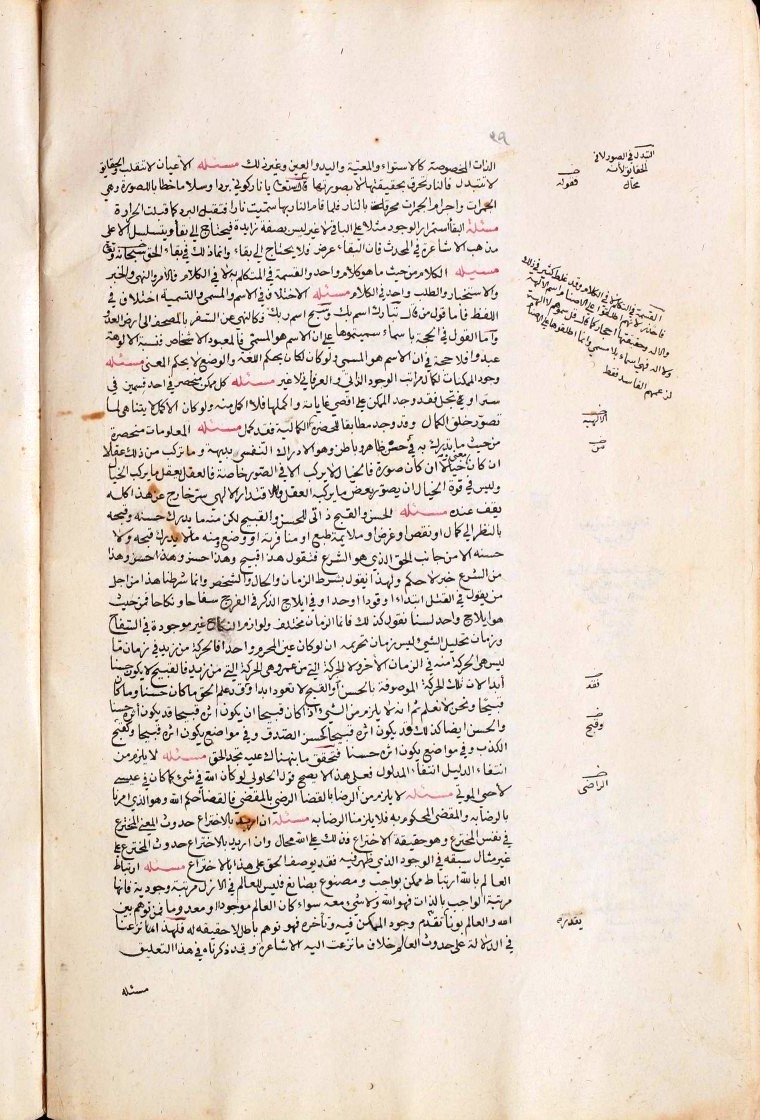 ٤٩
الذات المخصوصة كالاستواء والمعية واليد والعين وغير ذلك مسئله الاعيان لا تنقلب والحقايق
لا تتبدل فالنار تحرق بحقيقتها لا بصورتها فالستعا يا نار كوني بردا وسلاما خطابا للصورة وهي
الجمرات واجرام الجمرات محرقة بالنار فلما قام النار بها سميت نارا فتقبل البرد كما قبلت الحرارة
مسئلة البقا استمرار الوجود مثلا على الباقي لا غير ليس بصفة زايدة فيحتاج الى بقاء ويتسلسل الا على
مذهب الاشاعرة في المحدث فان البقاء عرض فلا يحتاج الى بقاء وانما ذلك في بقاء الحق سبحانه وتع
مسئله الكلام من حيث ما هو كلام واحد والقسمة في المتكلم به لا في الكلام فالامر والنهى والخبر
والاستخبار والطلب واحد في الكلام مسئله الاختلاف في الاسم والمسمى والتسمية اختلاف في
اللفظ فاما قول من قال تبارك اسم ربك وسبح اسم ربك فكالنهى عن السفر بالمصحف الى ارض العدو
واما القول في الحجة باسماء سميتموها على ان الاسم هو المسمى فالمعبود الاشخاص فنسبة الالوهة
عبدوا فلا حجة في ان الاسم هو المسمى ولو كان لكان بحكم اللغة والوضع لا بحكم المعنى مسئله
وجود الممكنات لكمال مراتب الوجود الذاتي والعرفاني لا غير مسئله كل ممكن منحصر في احد قسمين في
ستر او في تجل فقد وجد الممكن على اقصى غاياته واكملها فلا اكمل منه ولو كان الاكمل لا يتناهى لما
تصور خلق الكمال وقد وجد مطابقا للحضرة الكمالية فقد كمل مسئله المعلومات منحصرة
من حيث ما تدرك به في حس ظاهر وباطن وهو الادراك النفسي بديهة وما تركب من ذلك عقلا
ان كان معنى وخيالا ان كان صورة فالخيال لا يركب الا في الصور خاصة فالعقل يعقل ما يركب الخيال
وليس في قوة الخيال ان يصور بعض ما يركبه العقل وللاقتدار الالهى سر خارج عن هذا كله
يقف عنده مسئله الحسن والقبح ذاتى للحسن والقبيح لكن منه ما يدرك حسنه وقبحه
بالنظر الى كمال او نقص او غرض او ملايمة طبع او منافرته او وضع ومنه ما لا يدرك قبحه ولا
حسنه الا من جانب الحق الذي هو الشرع فنقول هذا قبيح وهذا حسن وهذا
من الشرع خبر لا حكم ولهذا نقول بشرط الزمان والحال والشخص وانما شرطنا هذا من اجل
من يقول في القتل ابتداء او قودا او حدا وفي ايلاج الذكر في الفرج سفاحا ونكاحا فمن حيث
هو ايلاج واحد لسنا نقول كذلك فان الزمان مختلف ولوازم النكاح غير موجودة في السفاح
وزمان تحليل الشي ليس زمان تحريمه ان لو كان عين المحرم واحدا فالحركة من زيد في زمان ما
ليس هي الحركة منه في الزمان الآخر ولا الحركة التي من عمرو هي الحركة التي من زيد فالقبيح لا يكون حسنا
ابدا لان تلك الحركة الموصوفة بالحسن او القبح لا تعود ابدا فقد علم الحق ما كان حسنا وما كان
قبيحا ونحن لا نعلم ثم انه لا يلزم من الشي اذا كان قبيحا ان يكون اثره قبيحا قد يكون اثره حسنا
والحسن ايضا كذلك قد يكون اثره قبيحا كحسن الصدق وفي مواضع يكون اثره قبيحا وكقبح
الكذب وفي مواضع يكون اثره حسنا فتحقق ما نبهناك عليه تجد الحق مسئله لا يلزم من
انتفاء الدليل انتفاء المدلول فعلى هذا لا يصح قول الحلولي لو كان الله في شئ كما كان في عيسى
لاحيى الموتى مسئله لا يلزم من الرضا بالقضا الرضى بالمقضى فالقضا حكم الله وهو الذي امرنا
بالرضا به والمقضى المحكوم به فلا يلزمنا الرضا به مسئله ان اريد بالاختراع حدوث المعنى المخترع
في نفس المخترع وهو حقيقة الاختراع فذلك على الله محال وان اريد بالاختراع حدوث المخترع على
غير مثال سبقه في الوجود الذي ظهر فيه فقد يوصف الحق على هذا بالاختراع مسئله ارتباط
العالم بالله ارتباط ممكن بواجب ومصنوع بصانع فليس للعالم في الازل مرتبة وجودية فانها
مرتبة الواجب بالذات فهو الله ولا شئ معه سواء كان العالم موجودا او معدوما فمن توهم بين
الله والعالم بونا تقدم وجود الممكن فيه وتأخره فهو توهم باطل لا حقيقة له فلهذا نزعنا
في الدلالة على حدوث العالم خلاف ما نزعت اليه الاشاعرة وقد ذكرناه في هذا التعليق
مسئله
التبدل في الصور لا في
الحقايق لانه
محال
فقوله
القسمة في المتكلم به لا في الكلام وقد غلط كثير في ذلك
لزعمهم الفاسد فقط
الالهية
من
فقد
وقبح
الراضى
يقدر